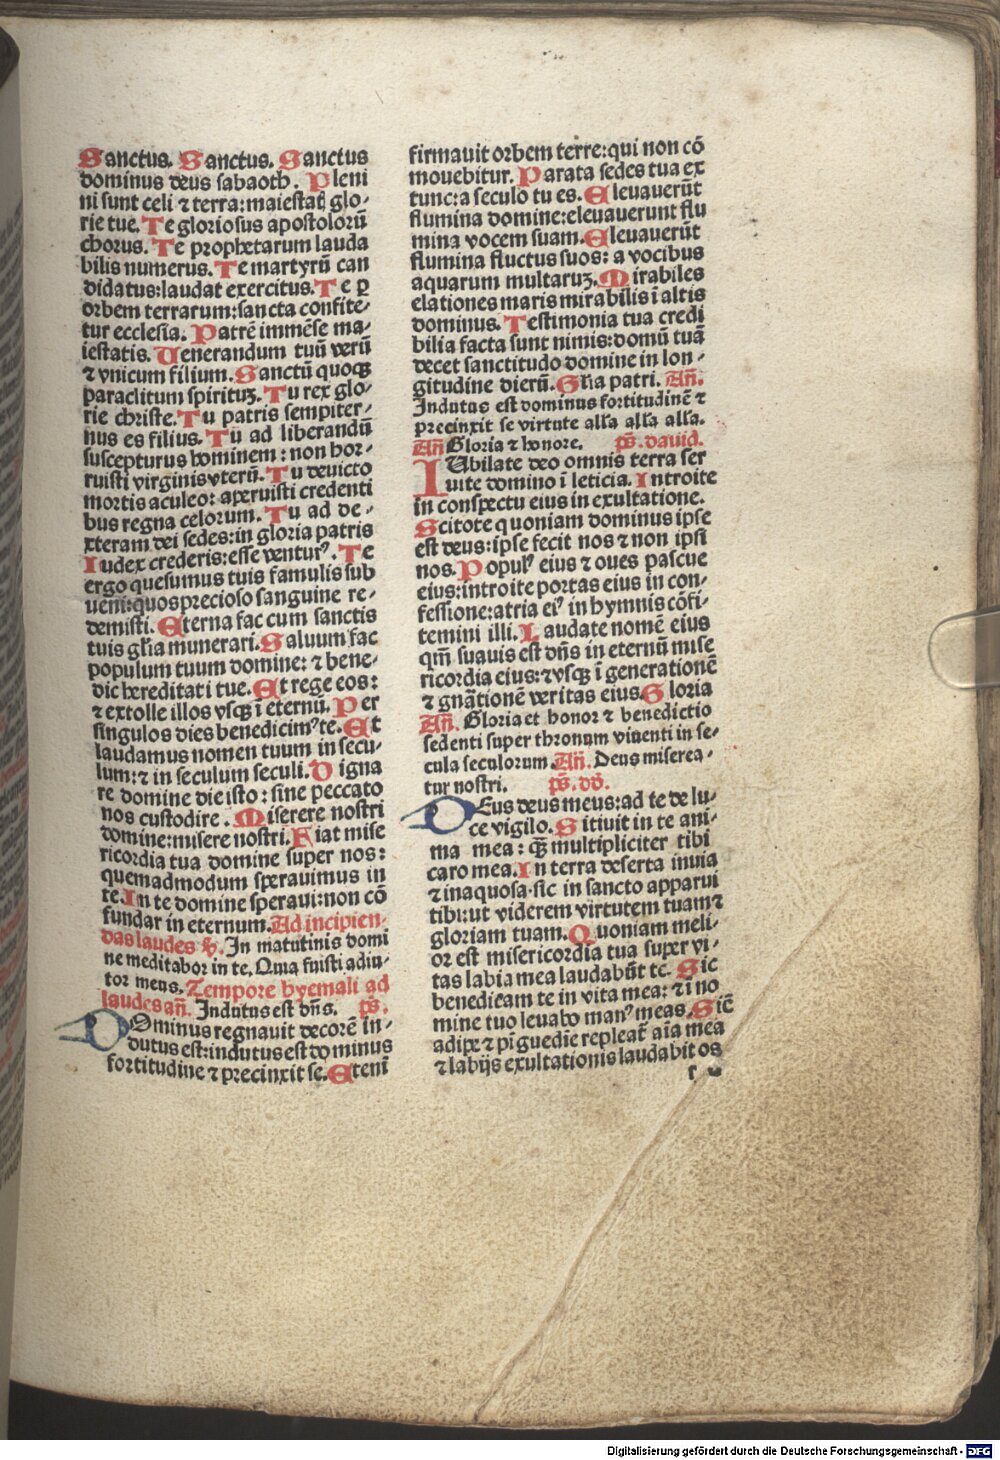 Sanctus. Sanctus. Sanctus
dominus deus sabaoth. Pleni
ni sunt celi ⁊ terra: maiestatꝭ glo-
rie tue. Te gloriosus apostolorū
chorus. Te prophetarum lauda
bilis numerus. Te martyrū can
didatus: laudat exercitus. Te ꝑ
orbem terrarum: sancta confite-
tur ecclesia. Patrē immēse ma-
iestatis. Uenerandum tuū verū
⁊ vnicum filium. Sanctū quoqꝫ
paraclitum spirituꝫ. Tu rex glo-
rie christe. Tu patris sempiter-
nus es filius. Tu ad liberandū
suscepturus hominem: non hor-
ruisti virginis vterū. Tu deuicto
mortis aculeo: aperuisti credenti
bus regna celorum. Tu ad de-
xteram dei sedes: in gloria patris
Iudex crederis: esse venturꝰ. Te
ergo quesumus tuis famulis sub
ueni: quos precioso sanguine re-
demisti. Eterna fac cum sanctis
tuis glīa munerari. Saluum fac
populum tuum domine: ⁊ bene-
dic hereditati tue. Et rege eos:
⁊ extolle illos vsqꝫ ī eternū. Per
singulos dies benedicimꝰ te. Et
laudamus nomen tuum in secu-
lum: ⁊ in seculum seculi. Digna
re domine die isto: sine peccato
nos custodire. Miserere nostri
domine: misere nostri. Fiat mise
ricordia tua domine super nos:
quemadmodum sperauimus in
te. In te domine speraui: non cō
fundar in eternum. Ad incipien-
das laudes ℣. In matutinis domi
ne meditabor in te. Quia fuisti adiu-
tor meus. Tempore hyemali ad
laudes añ. Indutus est dñs. pſ̄.
DOminus regnauit decorē in-
dutus est: indutus est dominus
fortitudine ⁊ precinxit se. Etenī
firmauit orbem terre: qui non cō
mouebitur. Parata sedes tua ex
tunc: a seculo tu es. Eleuauerūt
flumina domine: eleuauerunt flu
mina vocem suam. Eleuauerūt
flumina fluctus suos: a vocibus
aquarum multaruꝫ. Mirabiles
elationes maris mirabilis ī altis
dominus. Testimonia tua credi
bilia facta sunt nimis: domū tuā
decet sanctitudo domine in lon-
gitudine dierū. Glīa patri. Añ.
Indutus est dominus fortitudinē ⁊
precinxit se virtute alla alla alla.
Añ Gloria ⁊ honore. pſ̄. dauid.
IUbilate deo omnis terra ser
uite domino ī leticia. Introite
in conspectu eius in exultatione.
Scitote quoniam dominus ipse
est deus: ipse fecit nos ⁊ non ipsi
nos. Populꝰ eius ⁊ oues pascue
eius: introite portas eius in con-
fessione: atria eiꝰ in hymnis cōfi-
temini illi. Laudate nomē eius
qm̄ suauis est dñs in eternū mise
ricordia eius: ⁊ vsqꝫ ī generationē
⁊ gnātionē veritas eius. Gloria
Añ. Gloria et honor ⁊ benedictio
sedenti super thronum viuenti in se-
cula seculorum. Añ. Deus miserea-
tur nostri. pſ̄. dd̄.
DEus deus meus: ad te de lu-
ce vigilo. Sitiuit in te ani-
ma mea: qꝫ̄ multipliciter tibi
caro mea. In terra deserta inuia
⁊ inaquosa. sic in sancto apparui
tibi: ut viderem virtutem tuam ⁊
gloriam tuam. Quoniam meli-
or est misericordia tua super vi-
tas labia mea laudabūt te. Sic
benedicam te in vita mea: ⁊ ī no
mine tuo leuabo manꝰ meas. Sic̄
adipe ⁊ pīguedīe repleat̄ aīa mea
⁊ labijs exultationis laudabit os
Digitalisierung gefördert durch die Deutsche Forschungsgemeinschaft - DFG